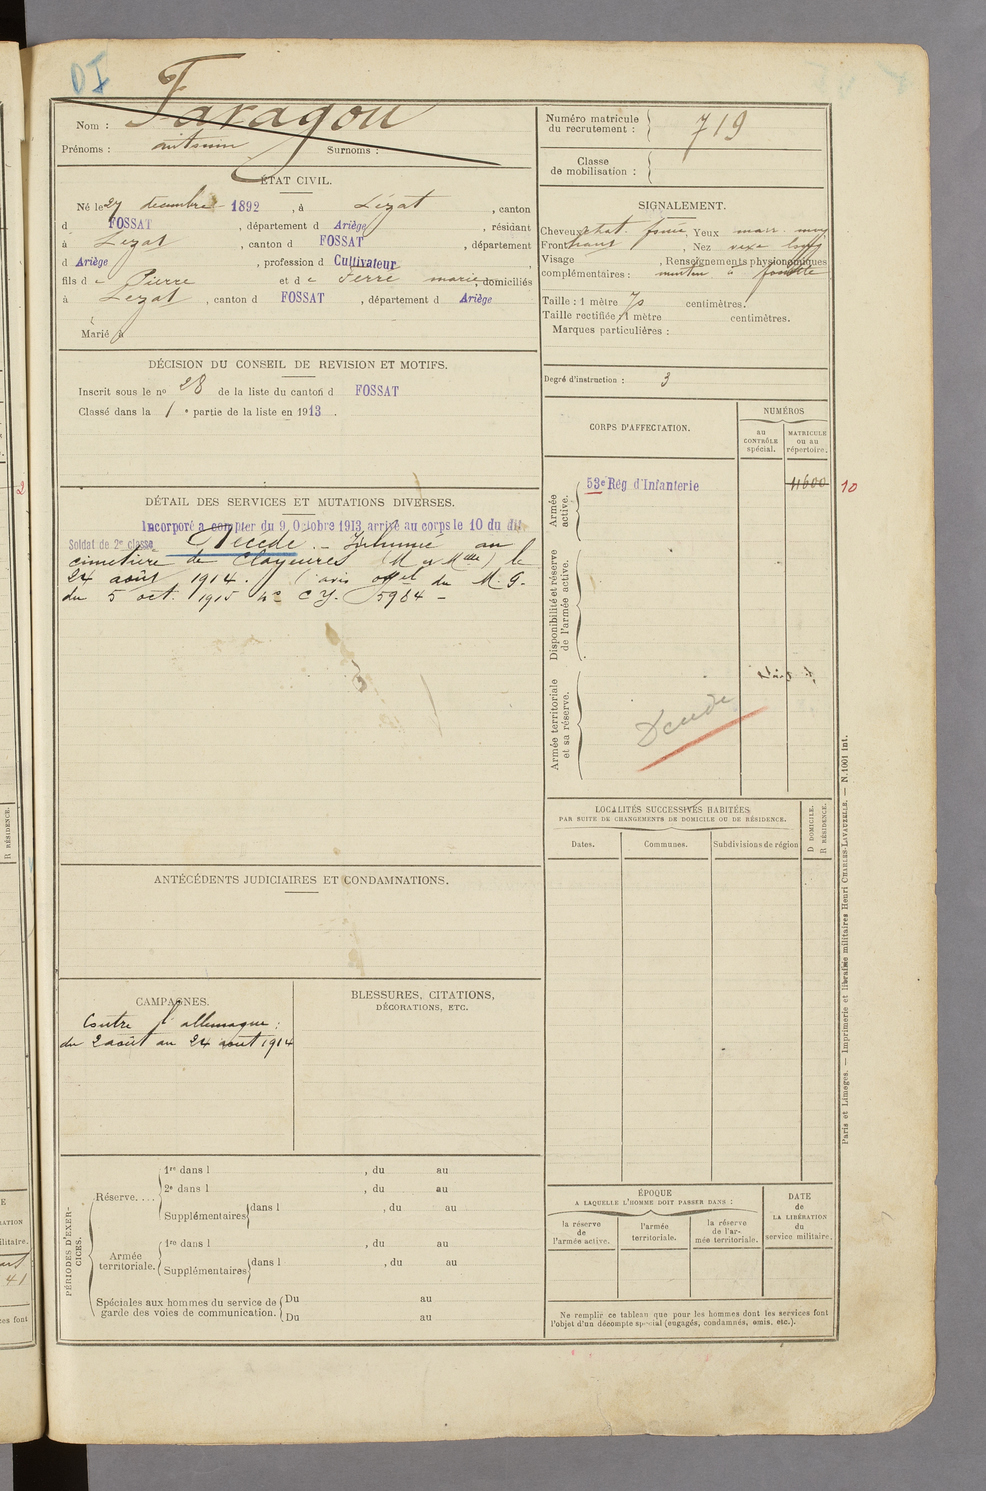 DI
Nom : Faragou
Prénoms : antonin Surnoms :
Numéro matricule du recrutement : 719
Classe de mobilisation :
ÉTAT CIVIL.
Né le 27 decembre 1892, à Lézat, canton
d FOSSAT, département d Ariège, résidant
à Lezat, canton d FOSSAT, département
d Ariège, profession d Cultivateur,
fils d e Pierre et d e Ferré marie domiciliés
à Lezat, canton d FOSSAT, département d Ariège
Marié à
SIGNALEMENT.
Cheveux chat. foncé, Yeux marr. moy
Front haut, Nez long
Visage , Renseignements physionomiques
complémentaires : menton à fossette
Taille : 1 mètre 70 centimètres.
Taille rectifiée : 1 mètre centimètres.
Marques particulières :
Degré d'instruction : 3
DÉCISION DU CONSEIL DE REVISION ET MOTIFS.
Inscrit sous le nº 28 de la liste du canton d FOSSAT
Classé dans la 1e partie de la liste en 1913.
CORPS D'AFFECTATION.
NUMÉROS
au CONTRÔLE spécial.
MATRICULE ou au répertoire.
Armée active.
53e Rég d'Infanterie
11600
10
Disponibilité et réserve de l'armée active.
Armée territoriale et sa réserve.
Décédé
DÉTAIL DES SERVICES ET MUTATIONS DIVERSES.
Incorporé à compter du 9 Octobre 1913 arrivé au corps le 10 du dit
Soldat de 2e classe, Décédé. Inhumé au
cimetière de (M et Mlle) le
24 août 1914. (avis offel du M. G.
du 5 oct. 1915 nº C.Y. 5984 -
LOCALITÉS SUCCESSIVES HABITÉES
PAR SUITE DE CHANGEMENTS DE DOMICILE OU DE RÉSIDENCE.
Dates.
Communes.
Subdivisions de région
D DOMICILE.
R RÉSIDENCE.
ANTÉCÉDENTS JUDICIAIRES ET CONDAMNATIONS.
CAMPAGNES.
Contre l'allemagne :
du 2 août au 24 août 1914
BLESSURES, CITATIONS,
DÉCORATIONS, ETC.
PÉRIODES D'EXERCICES.
Réserve....
1re dans l , du au
2e dans l , du au
Supplémentaires dans l , du au
Armée territoriale.
1re dans l , du au
Supplémentaires dans l , du au
Spéciales aux hommes du service de garde des voies de communication.
Du au
Du au
ÉPOQUE
A LAQUELLE L'HOMME DOIT PASSER DANS :
la réserve de l'armée active.
l'armée territoriale.
la réserve de l'armée territoriale.
DATE de LA LIBÉRATION du service militaire.
Ne remplir ce tableau que pour les hommes dont les services font
l'objet d'un décompte spécial (engagés, condamnés, omis, etc.).
Paris et Limoges. — Imprimerie et librairie militaires Henri CHARLES-LAVAUZELLE. — N. 1001 int.